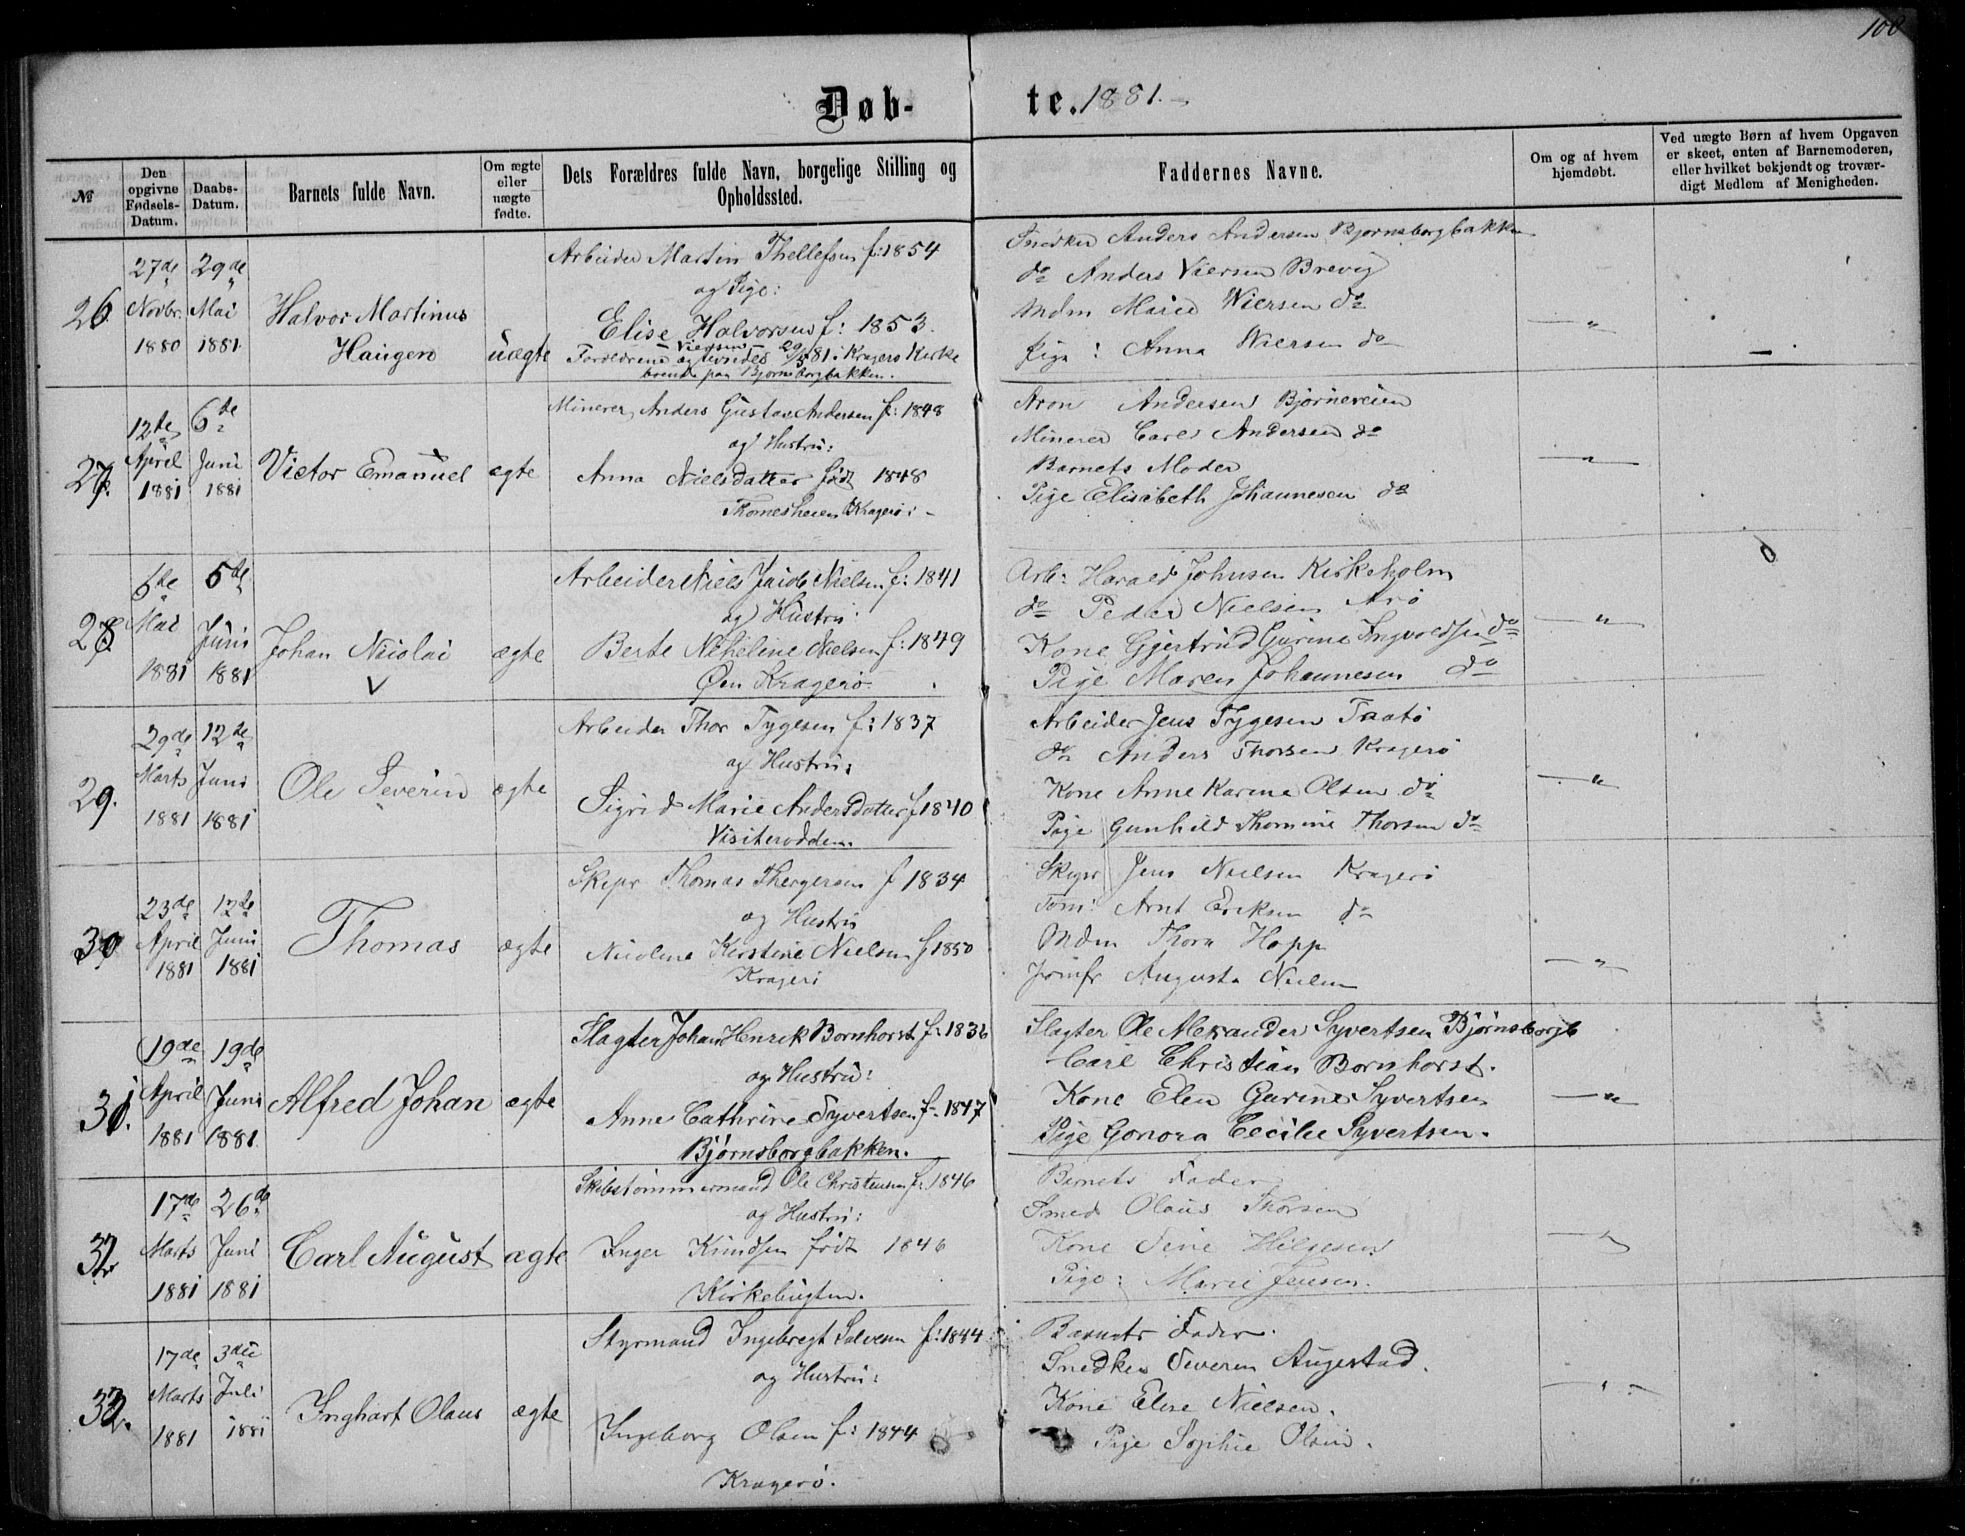 100
Døb-te. 1881.
№
Den opgivne Fødsels-Datum.
Daabs-Datum.
Barnets fulde Navn.
Om ægte eller uægte fødte.
Dets Forældres fulde Navn, borgelige Stilling og Opholdssted.
Faddernes Navne.
Om og af hvem hjemdøbt.
Ved uægte Børn af hvem Opgaven er skeet, enten af Barnemoderen, eller hvilket bekjendt og troværdigt Medlem af Menigheden.
26.
27de Novbr. 1880
29de Mai 1881
Halvor Martinus
Haugen
uægte
Arbeider Martin Thellefsen f: 1854
og Pige:
Elise Halvorsen f: 1853.
Viersen
Forældrene ægteviedes 29/5 81 i Kragerø Kirke
boende paa Bjørnsborgbakken.
Snedker Anders Andersen Bjørnsborgbakken
do Anders Viersen Brevig
Mdm Marie Wiersen do
Pige: Anna Wiersen do
— " —
—
27.
12te April 1881
6te Juni 1881
Victor Emanuel
ægte
Minerer Anders Gustav Andersen f: 1848
og Hustru:
Anna Nielsdatter født 1848
Thomesheien Kragerø: -
Aron Andersen Bjørneveien
Minerer Carl Andersen do
Barnets Moder
Pige Elisabeth Johannesen do
— " —
28.
6te Mai 1881
5te Juni 1881
Johan Nicolai
V
ægte
Arbeider Niels Jacob Nielsen f: 1841
og Hustru
Berte Nikeline Nielsen f: 1849
Øen Kragerø.
Arb: Harald Johnsen Kirkeholm
do Peder Nielsen Arø
Kone Gjertrud Gurine Ingvoldsen do
Pige Maren Johannesen do
— " —
29.
29de Marts 1881
12te Juni 1881
Ole Severin
ægte
Arbeider Thor Tygesen f: 1837
og Hustru:
Sigrid Marie Andersdatter f 1840
Visiterodden.
Arbeider Jens Tygesen Taatø
do Anders Thorsen Kragerø
Kone Anne Karine Olsen do
Pige Gunhild Thomine Thorsen do
— " —
30
23de April 1881
12te Juni 1881
Thomas
ægte
Skipr Thomas Thergersen f 1834
og Hustru
Nicoline Kirstine Nielsen f 1850
Kragerø
Skipr Jens Nielsen Kragerø
Tøm: Arnt Eriksen do
Mdm Thora Hopp
Jomfr Augusta Nielsen
— " —
31.
19de April 1881
19de Juni 1881.
Alfred Johan
ægte
Slagter Johan Henrik Bornhorst f: 1836
og Hustru:
Anne Cathrine Syvertsen f- 1847
Bjørnsborgbakken.
Slagter Ole Alexander Syvertsen Bjørnsborgb
Carl Christian Bornhorst.
Kone Elen Gurine Syvertsen
Pige Gonora Cecilie Syvertsen.
— " —
32
17de Marts 1881
26de Juni 1881
Carl August
ægte
Skibstømmermand Ole Christensen f: 1846
og Hustru:
Inger Knudsen født 1846
Kirkebugten.
Barnets Fader
Smed Olaus Thorsen
Kone Sine Helgesen
Pige: Marie Jensen.
— " —
33.
17de Marts 1881
3die Juli 1881
Inghart Olaus
ægte
Styrmand Ingebregt Salvesen f: 1844
og Hustru:
Ingeborg Olsen f: 1844
Kragerø.
Barnets Fader.
Snedker Severin Augestad.
Kone Elise Nielsen.
Pige Sophie Olsen.
— " —